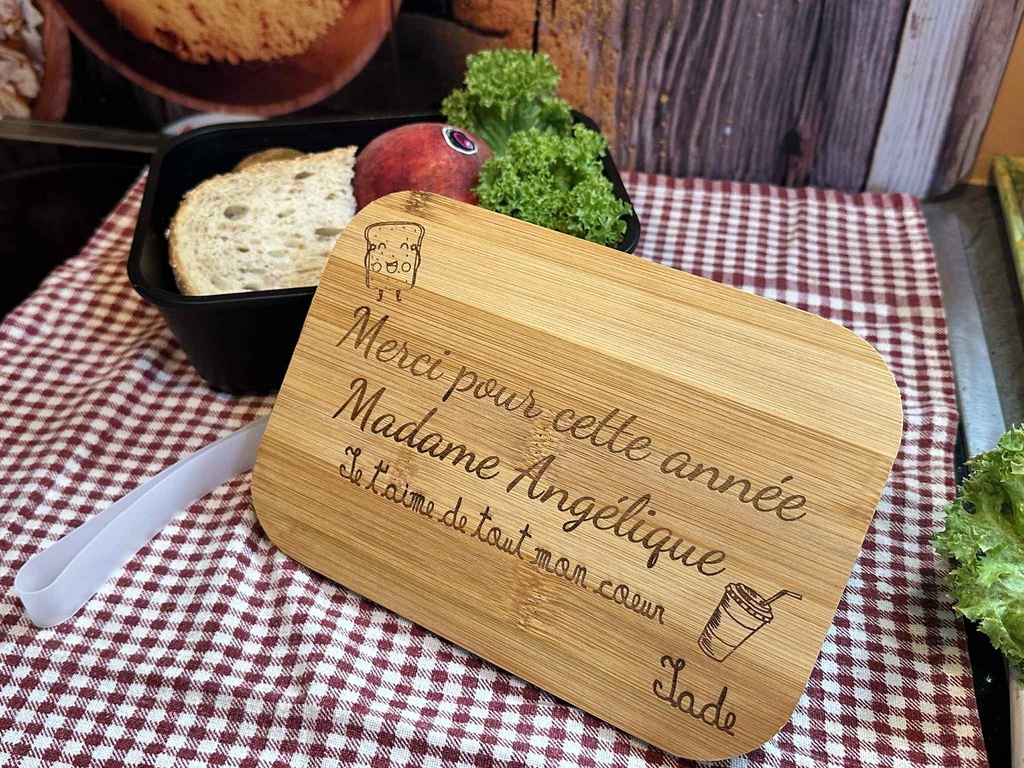 Merci pour cette année
Madame Angélique
Je t'aime de tout mon coeur
Jade